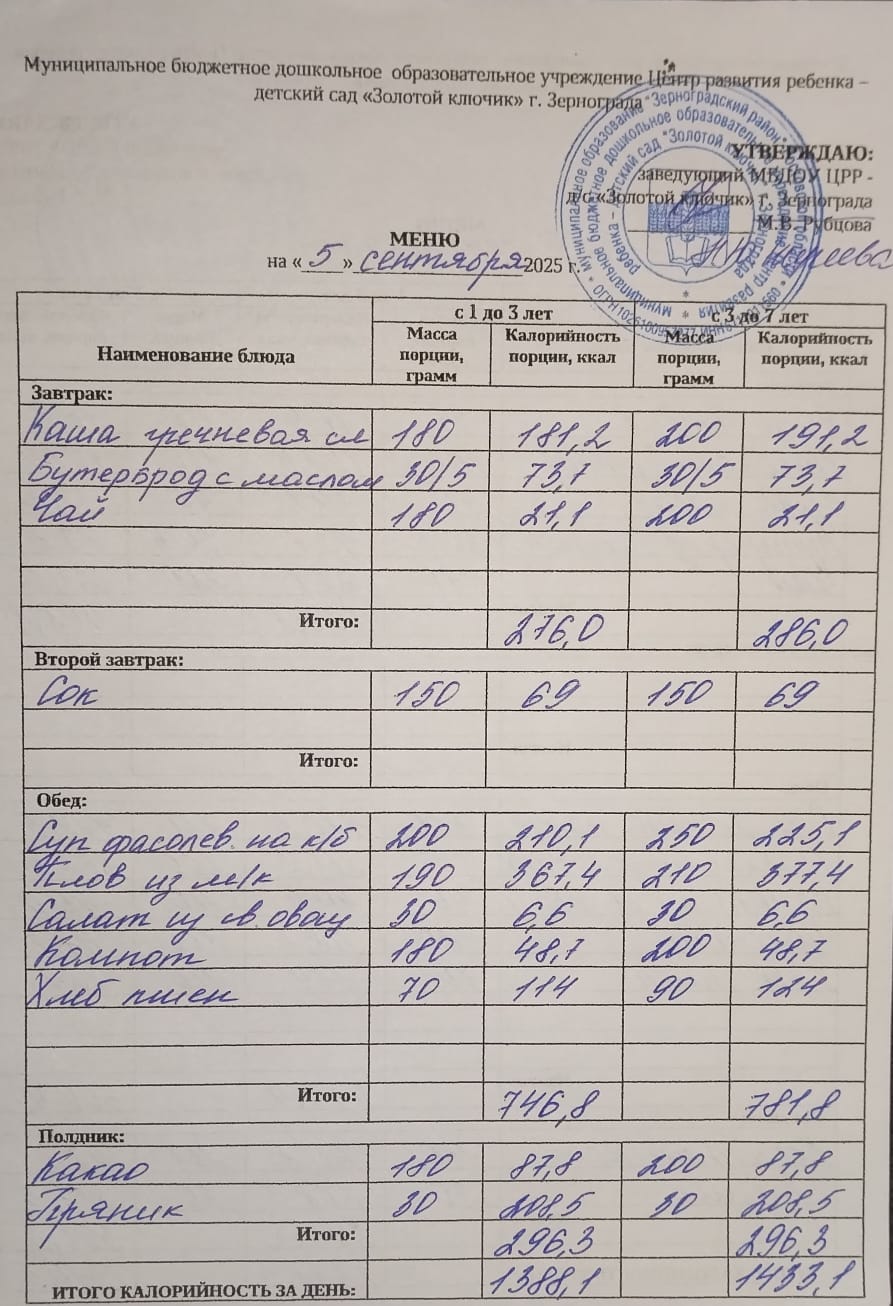 Муниципальное бюджетное дошкольное образовательное учреждение Центр развития ребенка –
детский сад «Золотой ключик» г. Зернограда
УТВЕРЖДАЮ:
заведующий МБДОУ ЦРР -
д/с «Золотой ключик» г. Зернограда
М.В. Рубцова
МЕНЮ
на «5» сентября 2025 г.
Наименование блюда с 1 до 3 лет с 3 до 7 лет
Масса порции, грамм Калорийность порции, ккал Масса порции, грамм Калорийность порции, ккал
Завтрак:
Каша гречневая сл 180 181,2 200 191,2
Бутерброд с маслом 30/5 73,7 30/5 73,7
Чай 180 21,1 200 21,1
Итого: 276,0 286,0
Второй завтрак:
Сок 150 69 150 69
Итого:
Обед:
Суп фасолев. на к/б 200 210,1 250 225,1
Плов из м/к 190 367,4 210 377,4
Салат из св. овощ 30 6,6 30 6,6
Компот 180 48,7 200 48,7
Хлеб пшен 70 114 90 124
Итого: 746,8 781,8
Полдник:
Какао 180 87,8 200 87,8
Пряник 30 208,5 30 208,5
Итого: 296,3 296,3
ИТОГО КАЛОРИЙНОСТЬ ЗА ДЕНЬ: 1388,1 1433,1